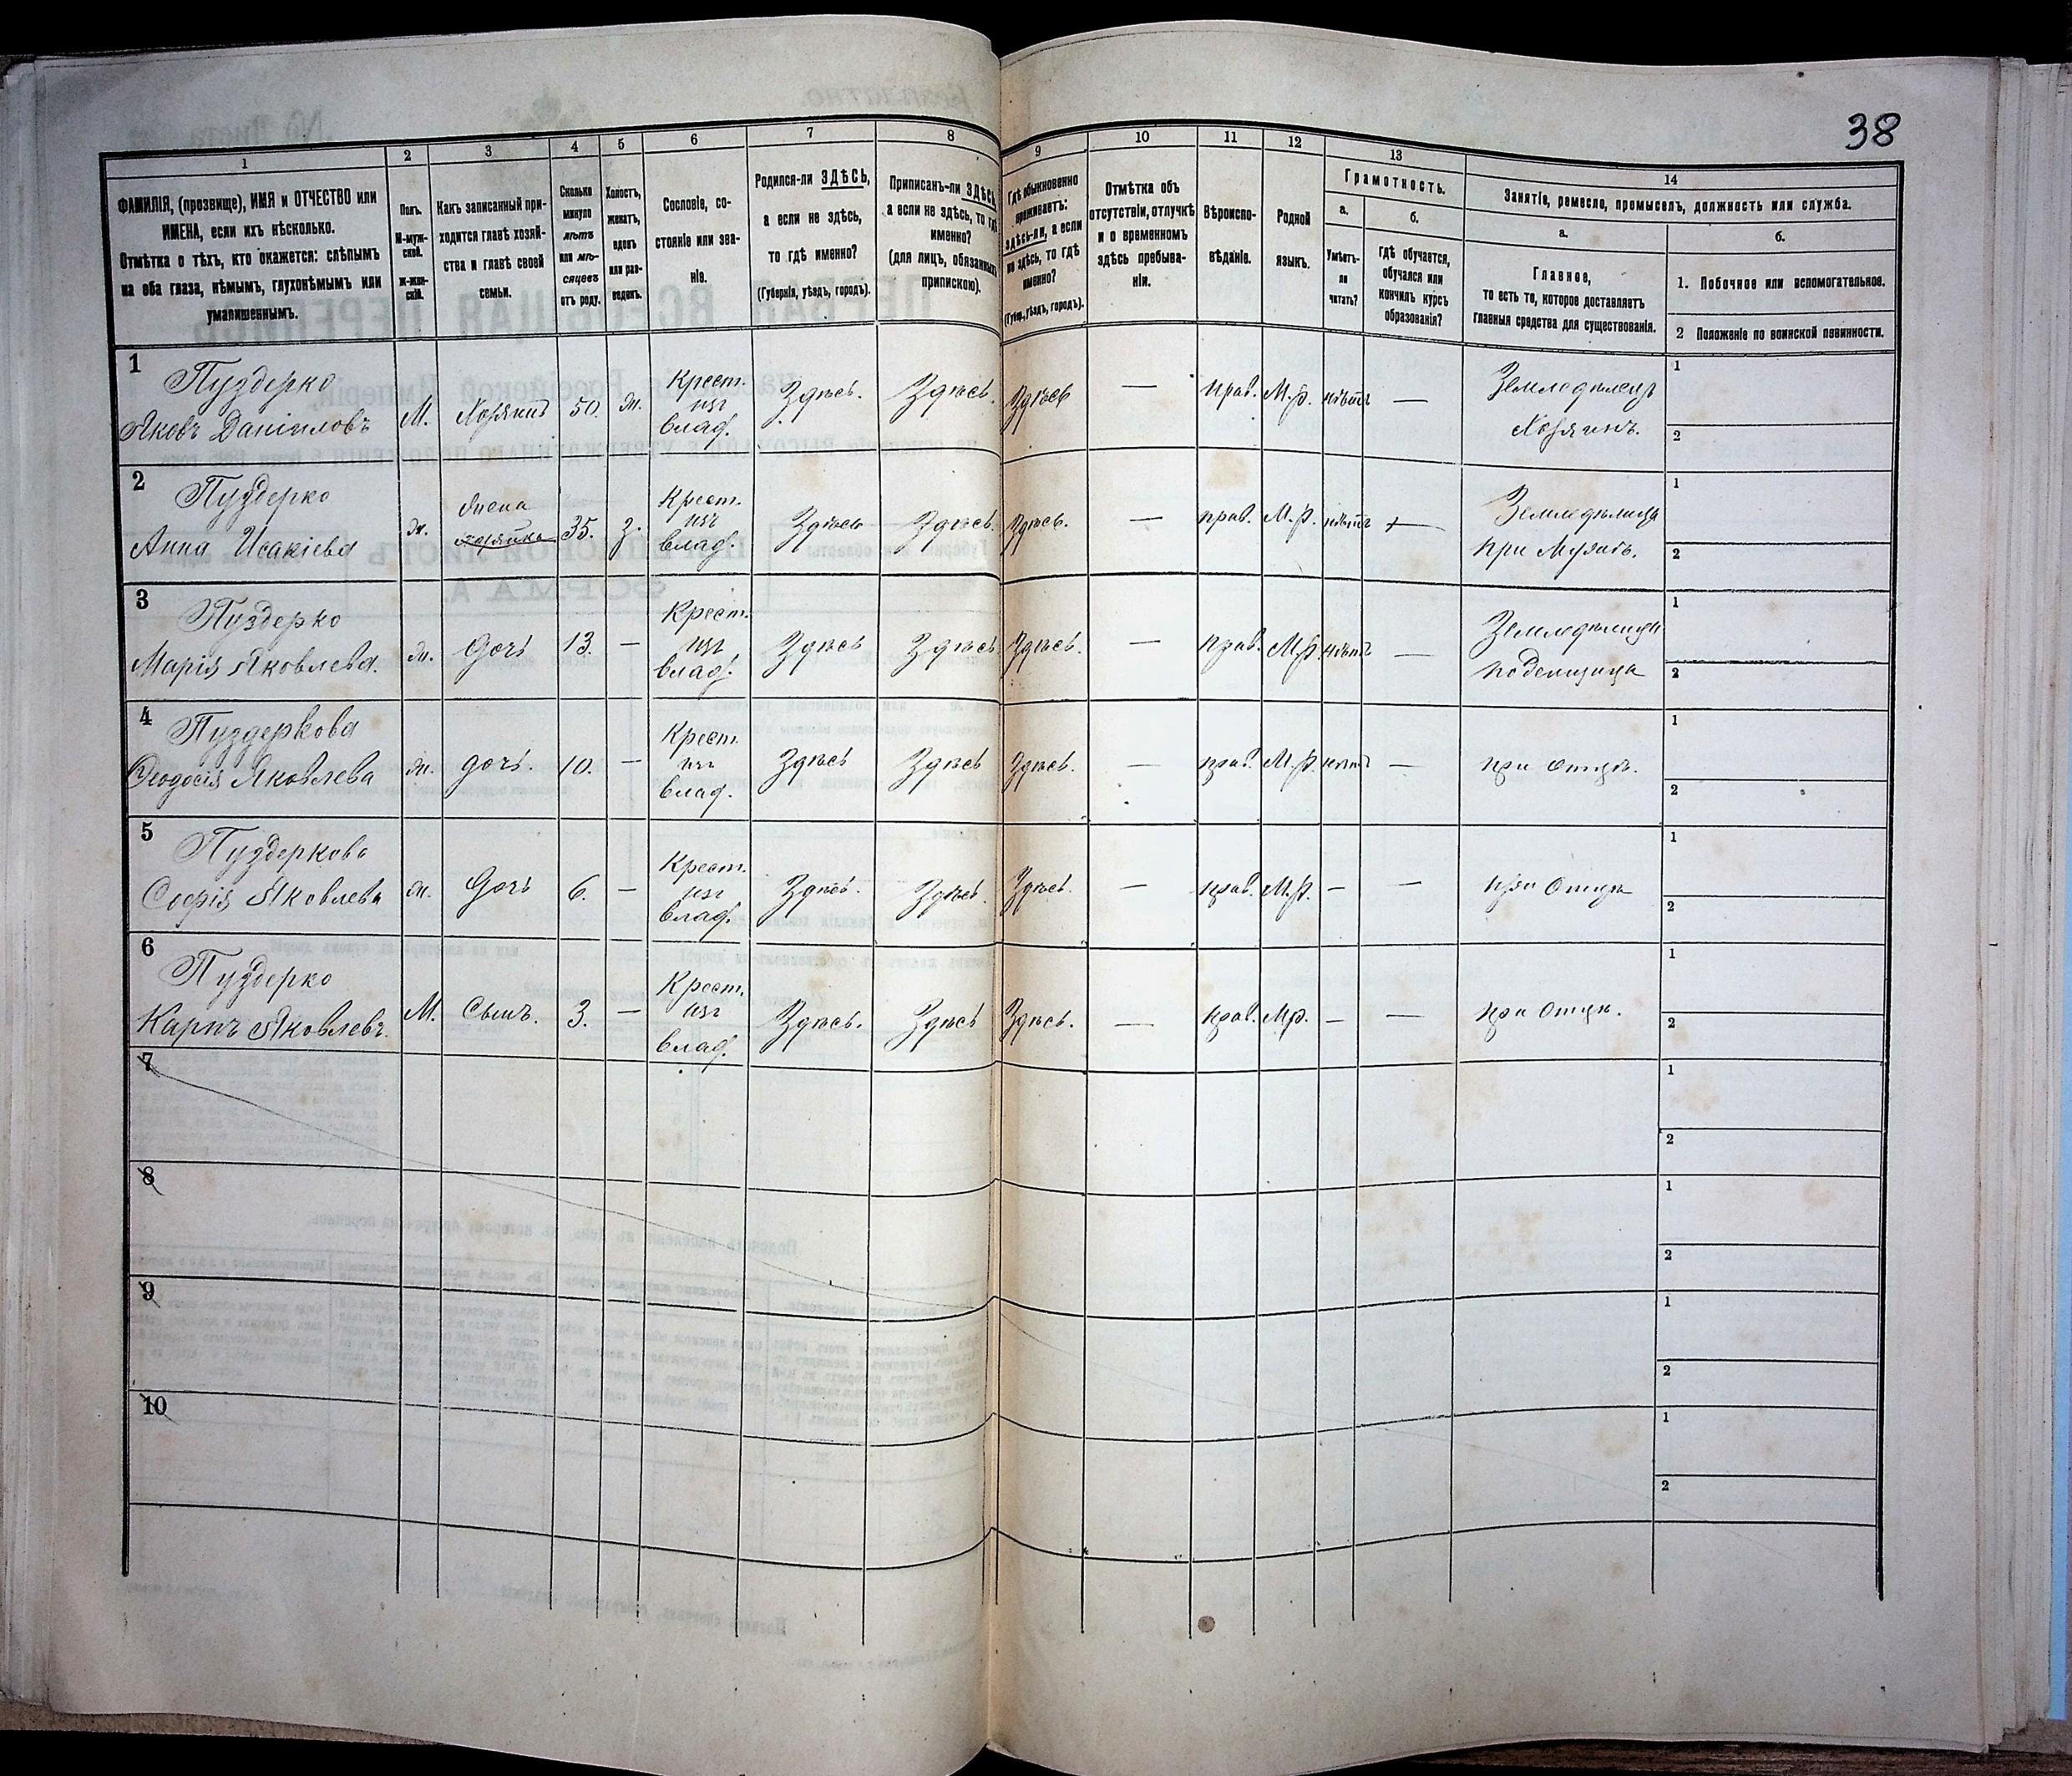 38
1
2
3
4
5
6
7
8
9
10
11
12
13
14
ФАМИЛІЯ, (прозвище), ИМЯ и ОТЧЕСТВО или
ИМЕНА, если ихъ нѣсколько.
Отмѣтка о тѣхъ, кто окажется: слѣпымъ
на оба глаза, нѣмымъ, глухонѣмымъ или
умалишеннымъ.
Полъ.
М-муж-
ской.
Ж-жен-
скій.
Какъ записанный при-
ходится главѣ хозяй-
ства и главѣ своей
семьи.
Сколько
минуло
лѣтъ
или мѣ-
сяцевъ
отъ роду.
Холостъ,
женатъ,
вдовъ
или раз-
веденъ.
Сословіе, со-
стояніе или зва-
ніе.
Родился-ли ЗДѢСЬ,
а если не здѣсь,
то гдѣ именно?
(Губернія, уѣздъ, городъ).
Приписанъ-ли ЗДѢСЬ,
а если не здѣсь, то гдѣ
именно?
(для лицъ, обязанныхъ
припискою).
Гдѣ обыкновенно
проживаетъ:
здѣсь-ли, а если
не здѣсь, то гдѣ
именно?
(Губер., уѣздъ, городъ).
Отмѣтка объ
отсутствіи, отлучкѣ
и о временномъ
здѣсь пребыва-
ніи.
Вѣроиспо-
вѣданіе.
Родной
языкъ.
Грамотность.
а.
Умѣетъ-
ли
читать?
б.
Гдѣ обучается,
обучался или
кончилъ курсъ
образованія?
Занятіе, ремесло, промыселъ, должность или служба.
а.
Главное,
то есть то, которое доставляетъ
главныя средства для существованія.
б.
1. Побочное или вспомогательное.
2 Положеніе по воинской повинности.
1
Пуздерко
Яковъ Даніиловъ
М. Хозяинъ 50. ж.
Крест.
изъ
влад.
Здѣсь. Здѣсь. Здѣсь — прав. М.р. нѣтъ —
Земледѣлецъ
Хозяинъ.
1
2
2
Пуздерко
Анна Исакіева
ж.
жена
хозяйка
35. з.
Крест.
изъ
влад.
Здѣсь Здѣсь. Здѣсь. — прав. М.р. нѣтъ —
Земледѣлица
при Мужѣ.
1
2
3
Пуздерко
Марія Яковлева.
ж. Дочь 13. —
Крест.
изъ
влад.
Здѣсь Здѣсь Здѣсь. — прав. М.р. нѣтъ —
Земледѣлица
поденщица
1
2
4
Пуздеркова
Феодосія Яковлева
ж. дочь. 10. —
Крест.
изъ
влад.
Здѣсь Здѣсь Здѣсь. — прав. М.р. нѣтъ — при отцѣ.
1
2
5
Пуздеркова
Софія Яковлева
ж. Дочь 6. —
Крест.
изъ
влад.
Здѣсь. Здѣсь. Здѣсь. — прав. М.р. — — при отцѣ
1
2
6
Пуздерко
Карпъ Яковлевъ.
М. Сынъ. 3. —
Крест.
изъ
влад.
Здѣсь. Здѣсь Здѣсь. — прав. Мр. — — при отцѣ.
1
2
7
1
2
8
1
2
9
1
2
10
1
2